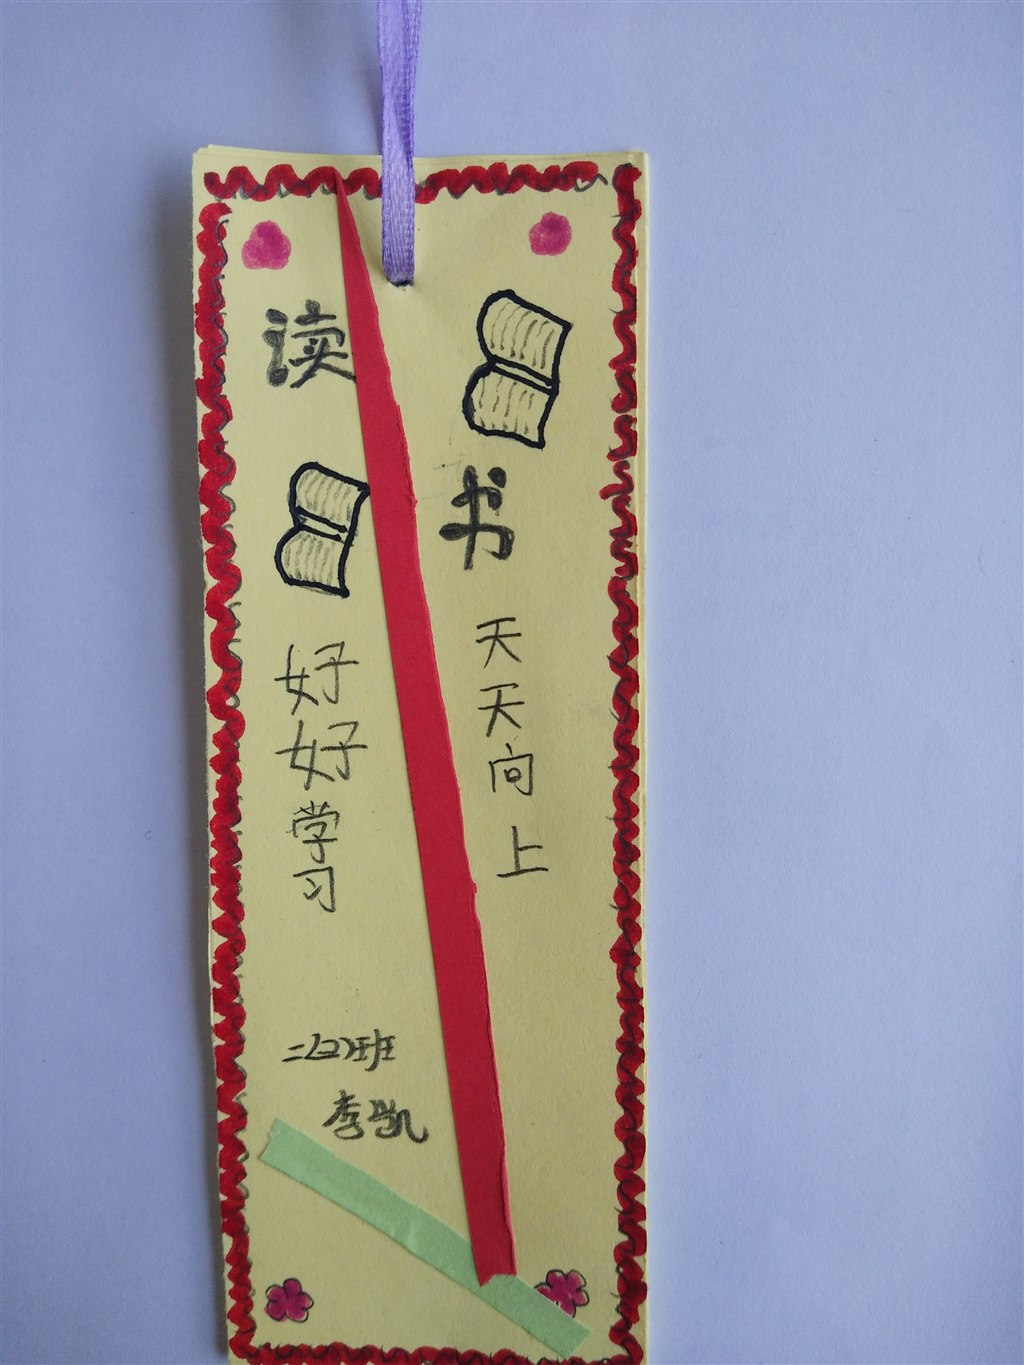 读
书
好好学习
天天向上
二(2)班
李凯